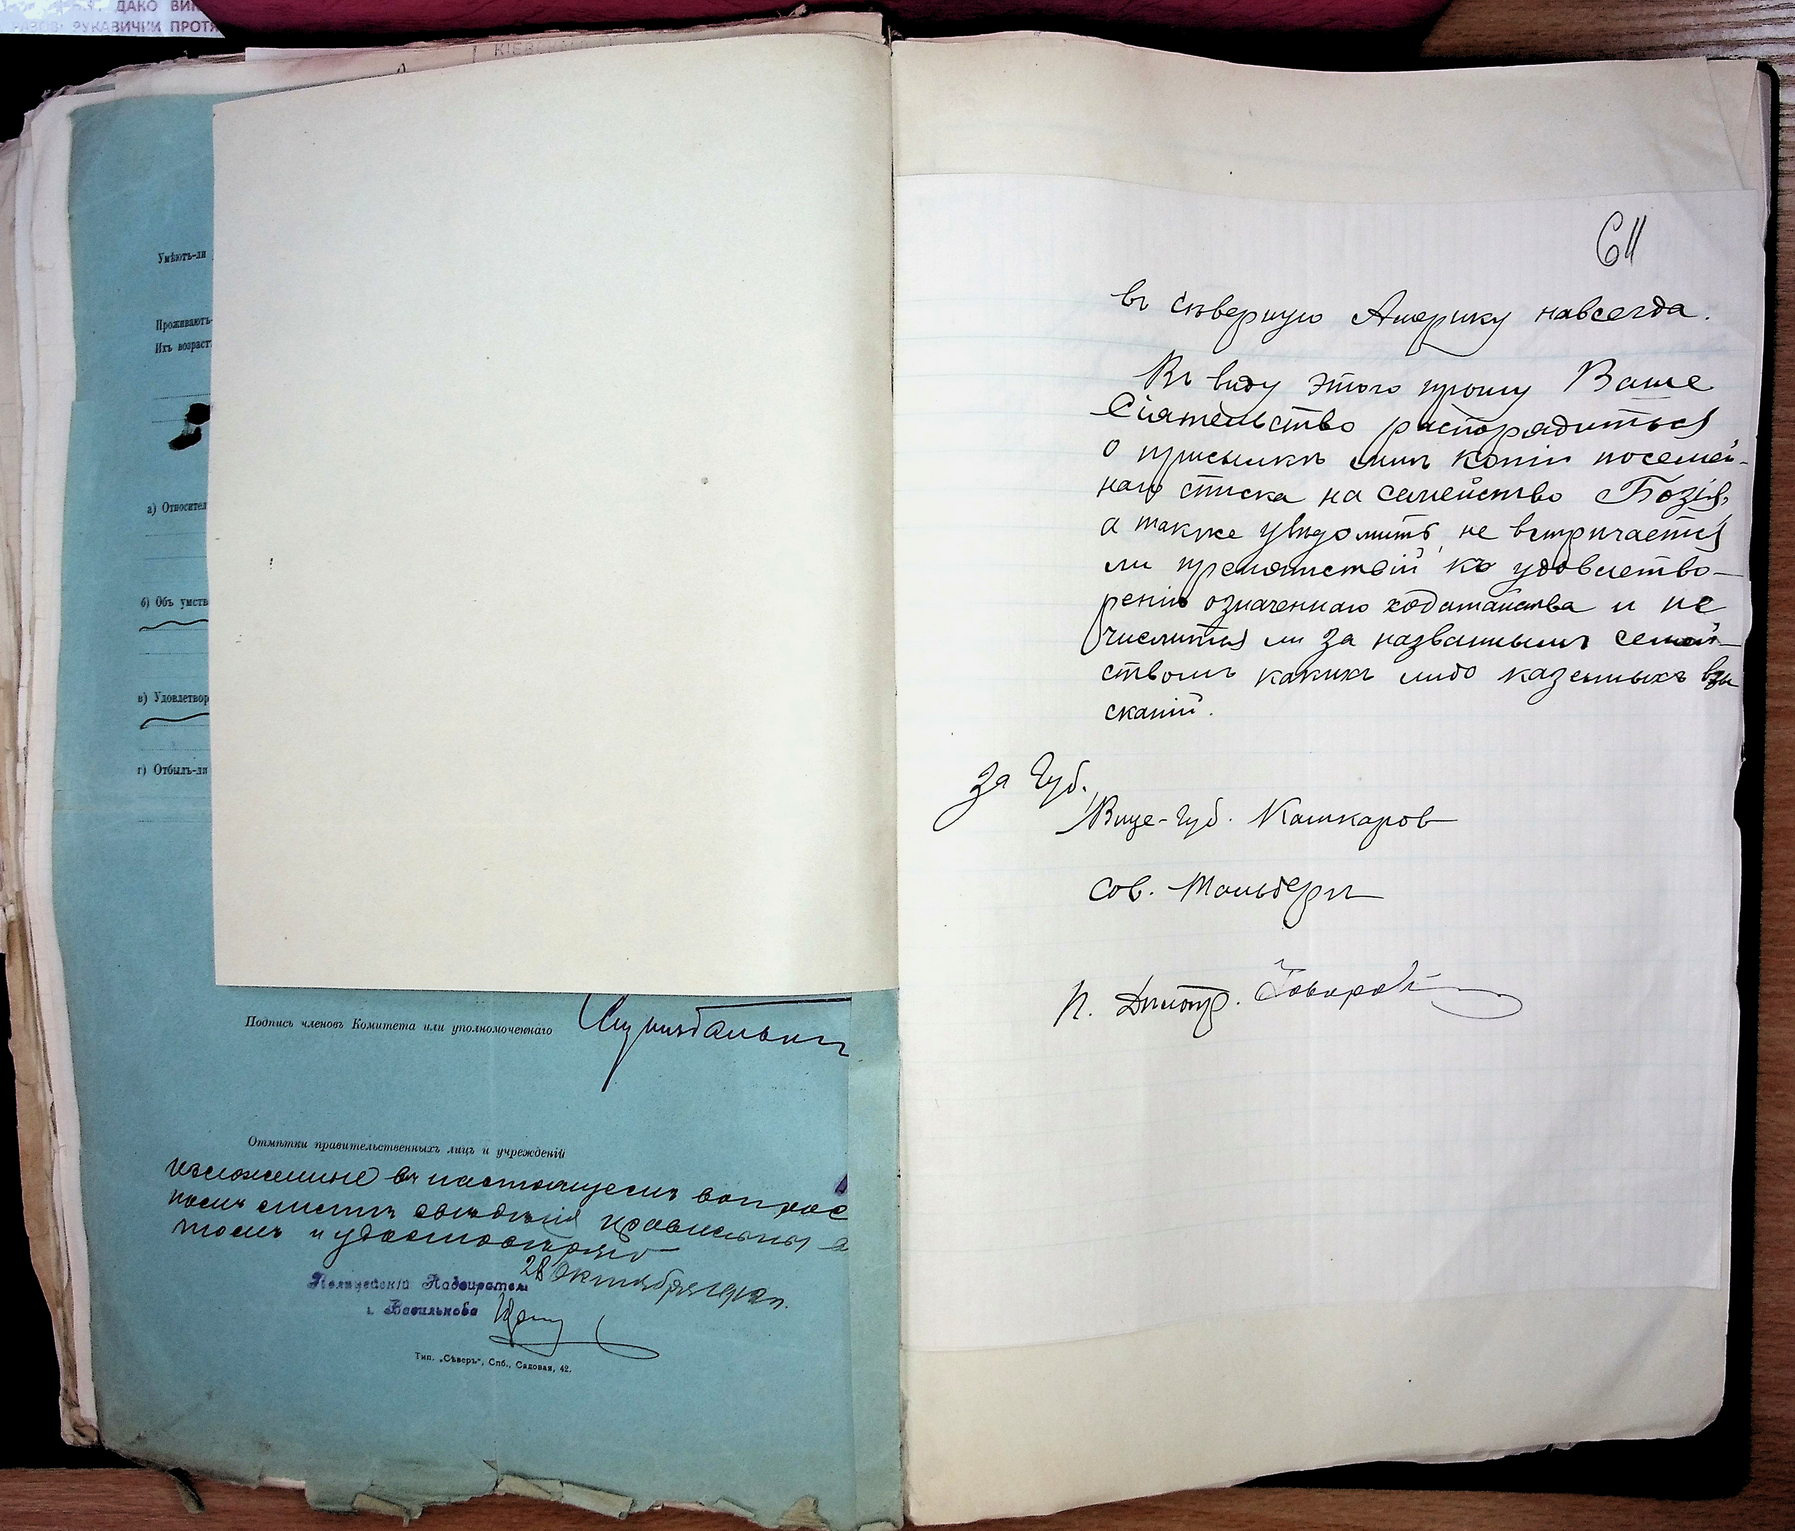 ДАКО ВИК
РАЗОВІ РУКАВИЧКИ ПРОТЯ
КІЕВСК
Умѣютъ-ли
Проживаютъ-
Ихъ возраст
а) Относител
б) Объ умств
в) Удовлетвор
г) Отбылъ-ли
Подпись членовъ Комитета или уполномоченнаго
Отмѣтки правительственныхъ лицъ и учрежденій
изложенные въ настоящемъ вопрос
номъ листѣ свѣдѣнія правильны въ
томъ и удостовѣряю
28 Октября 1912 г.
Полицейскій Надзиратель
г. Василькова
Тип. „Сѣверъ", Спб., Садовая, 42.
611
въ сѣверную Америку навсегда.
Въ виду этого прошу Ваше
Сіятельство распорядиться
о присылкѣ мнѣ копіи посемей-
наго списка на семейство Бозія,
а также увѣдомить, не встрѣчается
ли препятствій къ удовлетво-
ренію означеннаго ходатайства и не
числится ли за названнымъ семей-
ствомъ какихъ либо казенныхъ взы
сканій.
За Губ.
Вице-Губ. Кашкаров
Сов.